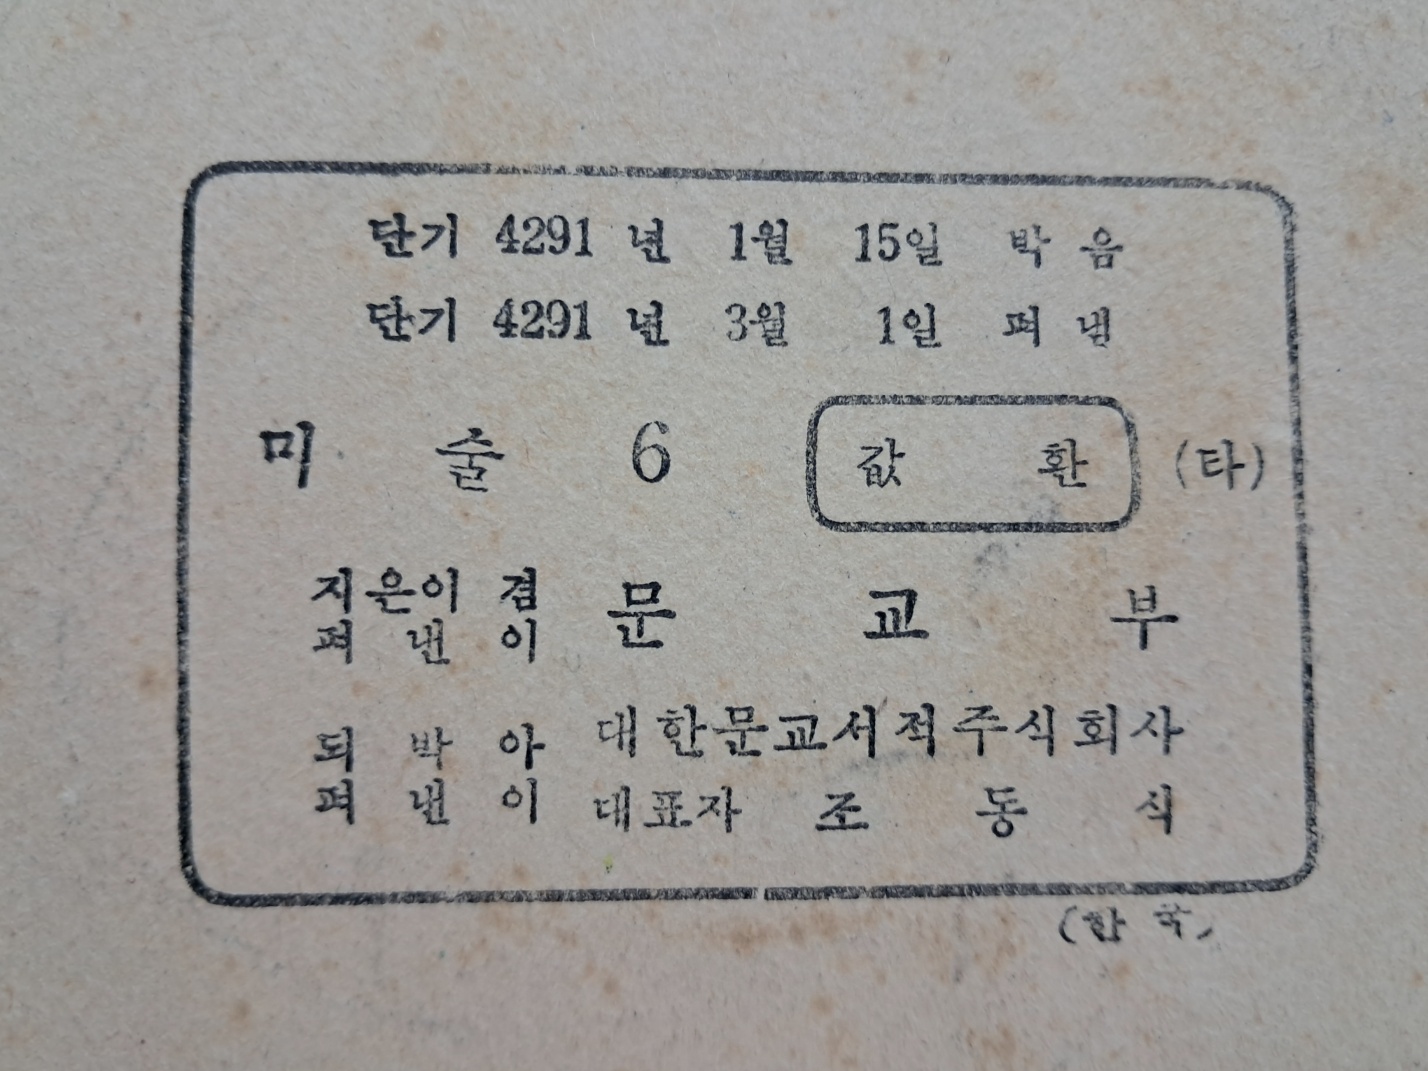 단기 4291 년 1월 15일 박 음
단기 4291 년 3월 1일 펴 냄
미 술 6 값 환 (타)
지은이 겸
펴 낸 이
문 교 부
되 박 아
펴 낸 이
대한문교서적주식회사
대표자 조 동 식
(한 국)